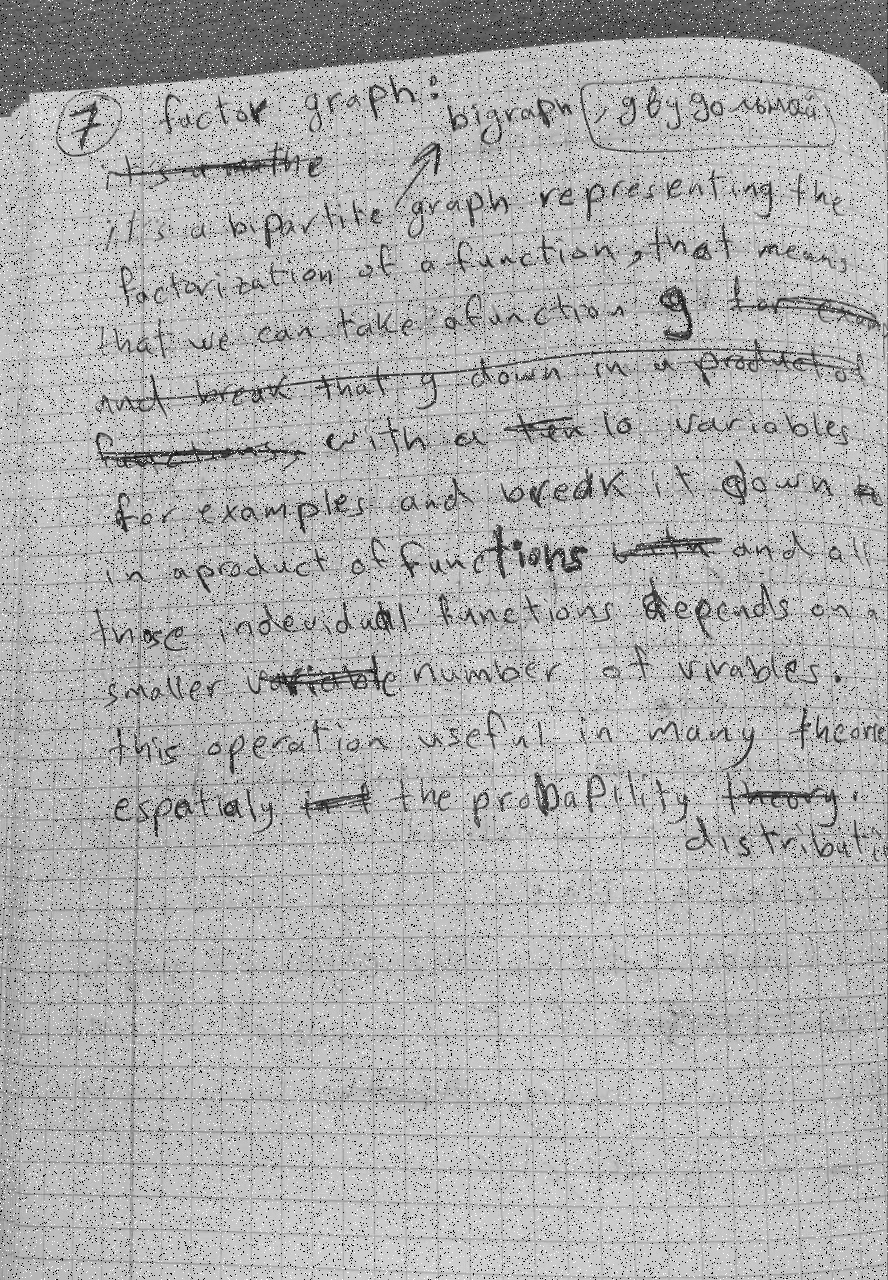 7 factor graph:
bigraph, двудольный
it's a bipartite graph representing the
factorization of a function, that means
that we can take a function g
with a 10 variables
for examples and break it down
in a product of functions and all
those indevidual functions depends on a
smaller number of virables.
this operation useful in many theorie
espatialy the probapility
distributi